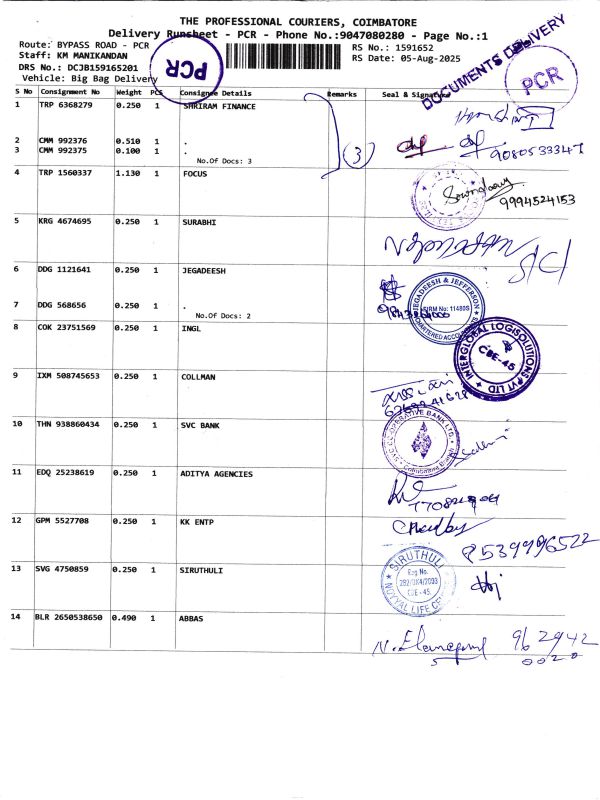 THE PROFESSIONAL COURIERS, COIMBATORE
Delivery Runsheet - PCR - Phone No.:9047080280 - Page No.:1
Route: BYPASS ROAD - PCR
RS No.: 1591652
Staff: KM MANIKANDAN
RS Date: 05-Aug-2025
DRS No.: DCJB159165201
Vehicle: Big Bag Delivery
PCR
DOCUMENTS DELIVERY
PCR
S No Consignment No Weight PCS Consignee Details Remarks Seal & Signature
1 TRP 6368279 0.250 1 SHRIRAM FINANCE
2 CMM 992376 0.510 1 .
3 CMM 992375 0.100 1 .
No.Of Docs: 3
3
9080533347
4 TRP 1560337 1.130 1 FOCUS
9994524153
5 KRG 4674695 0.250 1 SURABHI
6 DDG 1121641 0.250 1 JEGADEESH
7 DDG 568656 0.250 1 .
No.Of Docs: 2
JEGADEESH & JEFFERSON
FIRM No: 11480S
CHARTERED ACCOUNTANTS
8 COK 23751569 0.250 1 INGL
INTERGLOBAL LOGISOLUTIONS PVT LTD
CBE-45
9 IXM 508745653 0.250 1 COLLMAN
10 THN 938860434 0.250 1 SVC BANK
SVC CO-OPERATIVE BANK LTD.
Coimbatore Branch
11 EDQ 25238619 0.250 1 ADITYA AGENCIES
12 GPM 5527708 0.250 1 KK ENTP
8539996522
13 SVG 4750859 0.250 1 SIRUTHULI
SIRUTHULI
Reg No.
CBE -45.
NOYYAL LIFE
14 BLR 2650538650 0.490 1 ABBAS
962942
0020